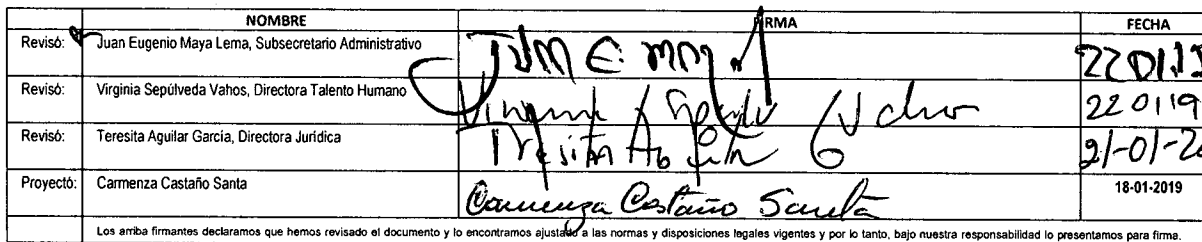 NOMBRE FIRMA FECHA
Revisó: Juan Eugenio Maya Lema, Subsecretario Administrativo JUAN E. MAYA 220119
Revisó: Virginia Sepúlveda Vahos, Directora Talento Humano 220119
Revisó: Teresita Aguilar García, Directora Jurídica 21-01-20
Proyectó: Carmenza Castaño Santa Carmenza Castaño Santa 18-01-2019
Los arriba firmantes declaramos que hemos revisado el documento y lo encontramos ajustado a las normas y disposiciones legales vigentes y por lo tanto, bajo nuestra responsabilidad lo presentamos para firma.